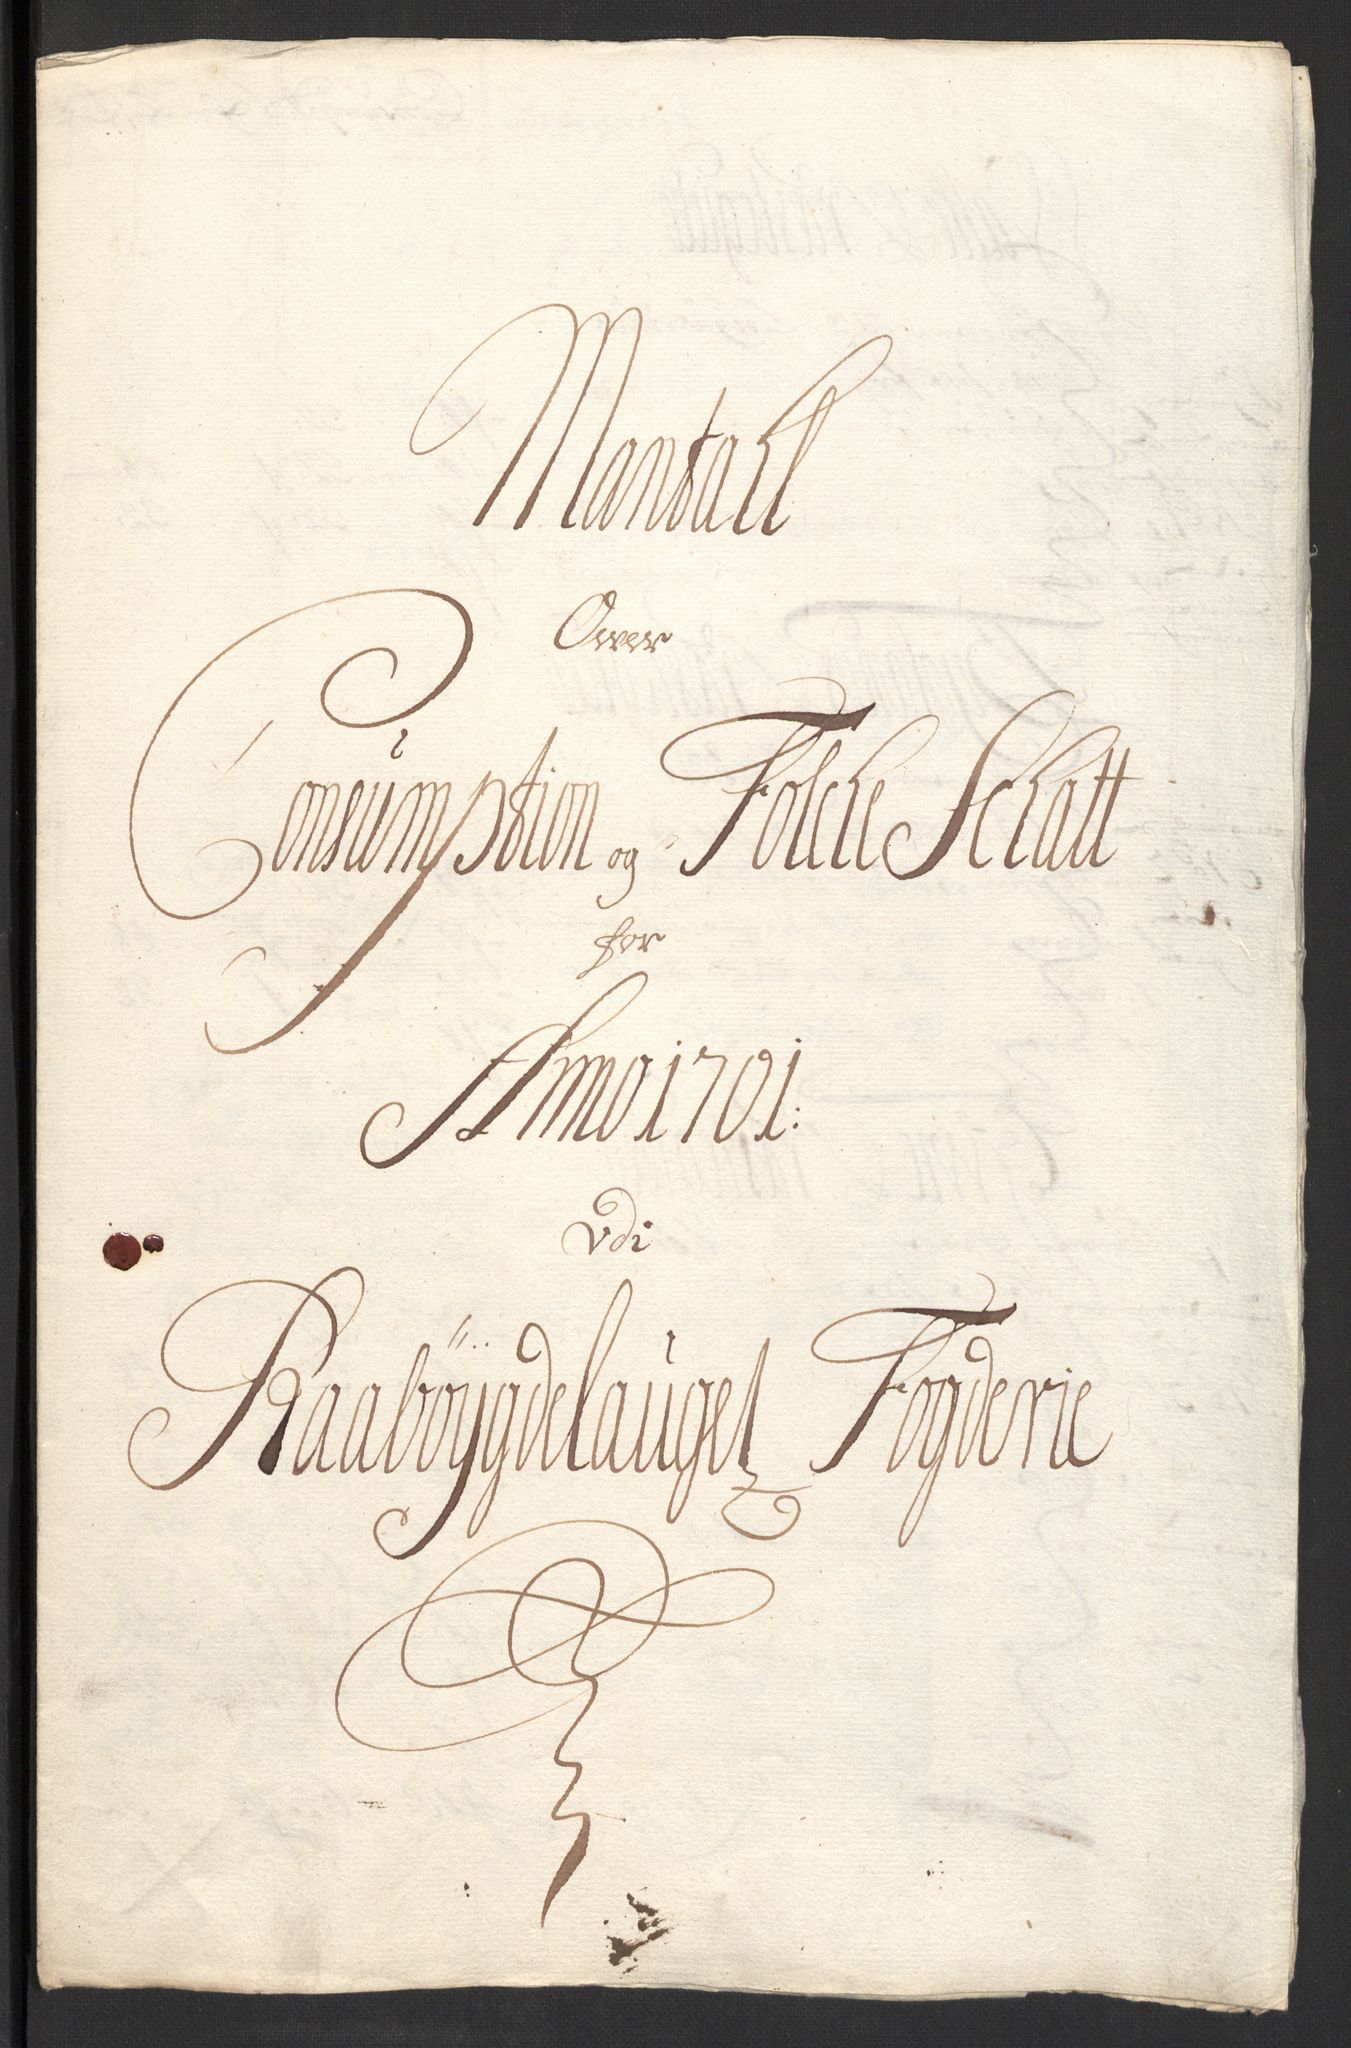 Mantall
Over
Consumption og Folche Schatt
for
Anno 1701:
udi
Raabøygdelauget Fogderie